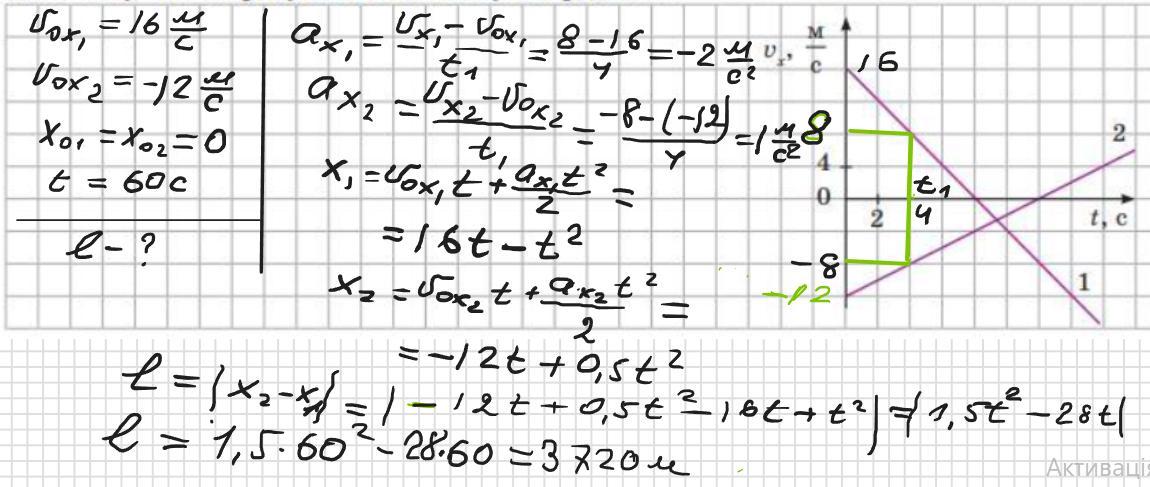 υ₀ₓ₁ = 16 м/с
υ₀ₓ₂ = -12 м/с
x₀₁ = x₀₂ = 0
t = 60 с
ℓ - ?
aₓ₁ = (υₓ₁ - υ₀ₓ₁)/t₁ = (8 - 16)/4 = -2 м/с²
aₓ₂ = (υₓ₂ - υ₀ₓ₂)/t₁ = (-8 - (-12))/4 = 1 м/с²
x₁ = υ₀ₓ₁t + aₓ₁t²/2 =
= 16t - t²
x₂ = υ₀ₓ₂t + aₓ₂t²/2 =
= -12t + 0,5t²
υₓ, м/с
16
8
4
0
2
t₁
4
-8
-12
2
t, с
1
ℓ = |x₂ - x₁| = |-12t + 0,5t² - 16t + t²| = |1,5t² - 28t|
ℓ = 1,5·60² - 28·60 = 3720 м
Активація